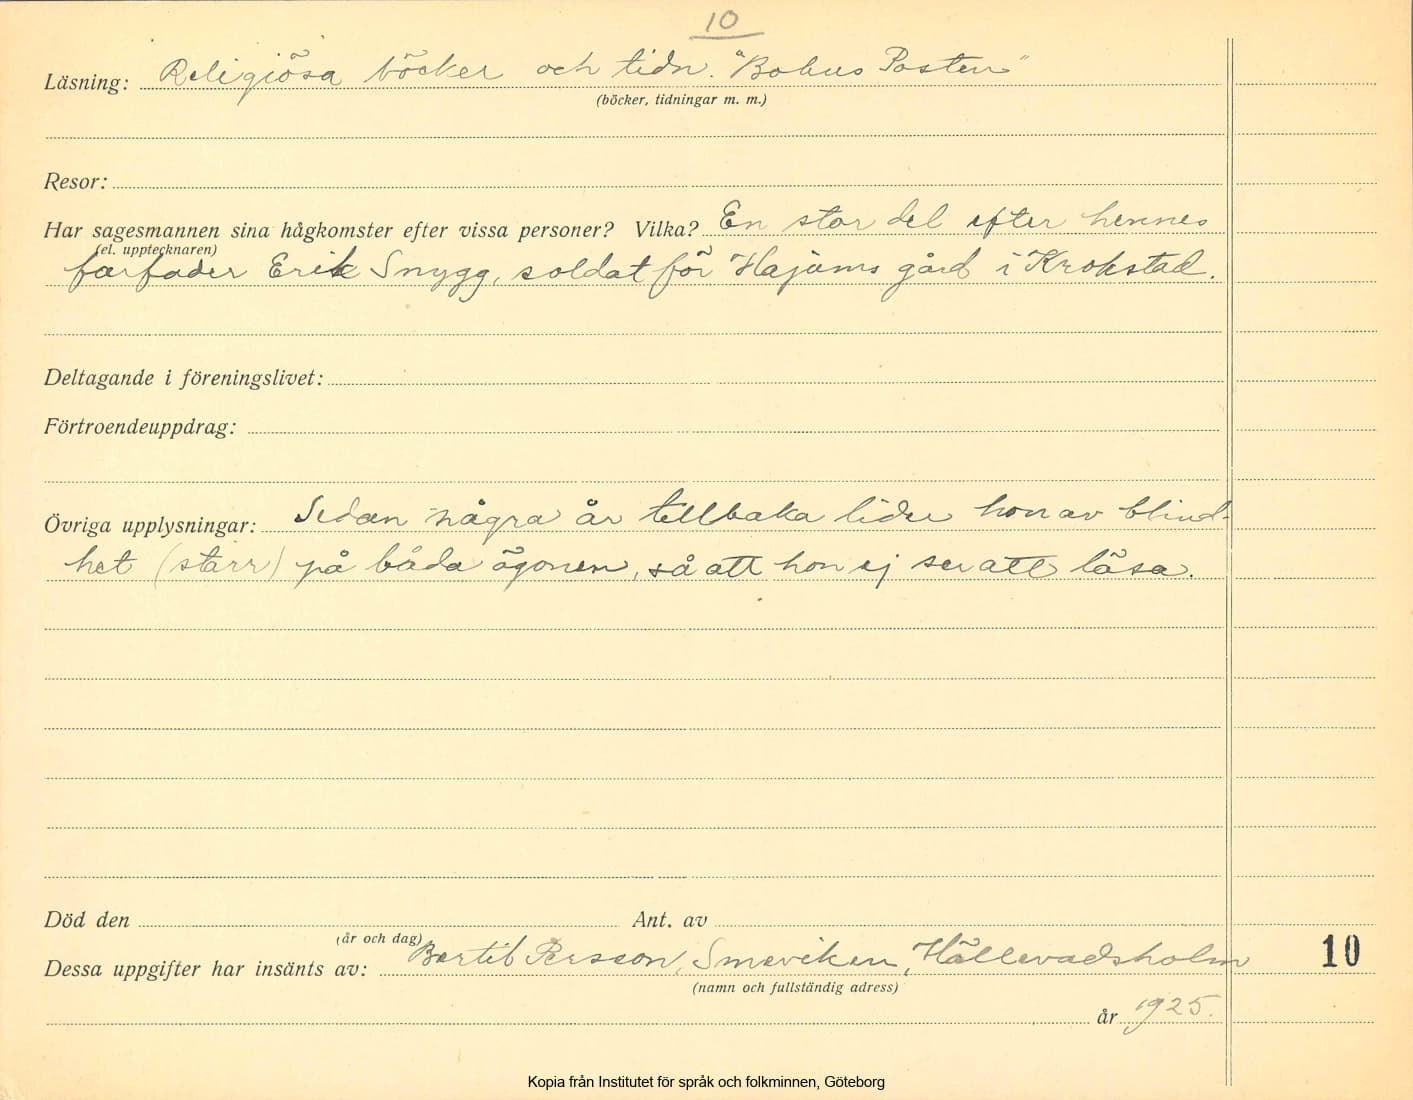 10
Läsning: Religiösa böcker och tidn. "Bohus Posten"
(böcker, tidningar m. m.)
Resor:
Har sagesmannen sina hågkomster efter vissa personer? Vilka? En stor del efter hennes
(el. upptecknaren)
farfader Erik Snygg, soldat för Hajums gård i Krokstad.
Deltagande i föreningslivet:
Förtroendeuppdrag:
Övriga upplysningar: Sedan några år tillbaka lider hon av blind-
het (starr) på båda ögonen, så att hon ej ser att läsa.
Död den Ant. av
(år och dag)
Dessa uppgifter har insänts av: Bertil Persson, Smeviken, Hällevadsholm 10
(namn och fullständig adress)
år 1925.
Kopia från Institutet för språk och folkminnen, Göteborg